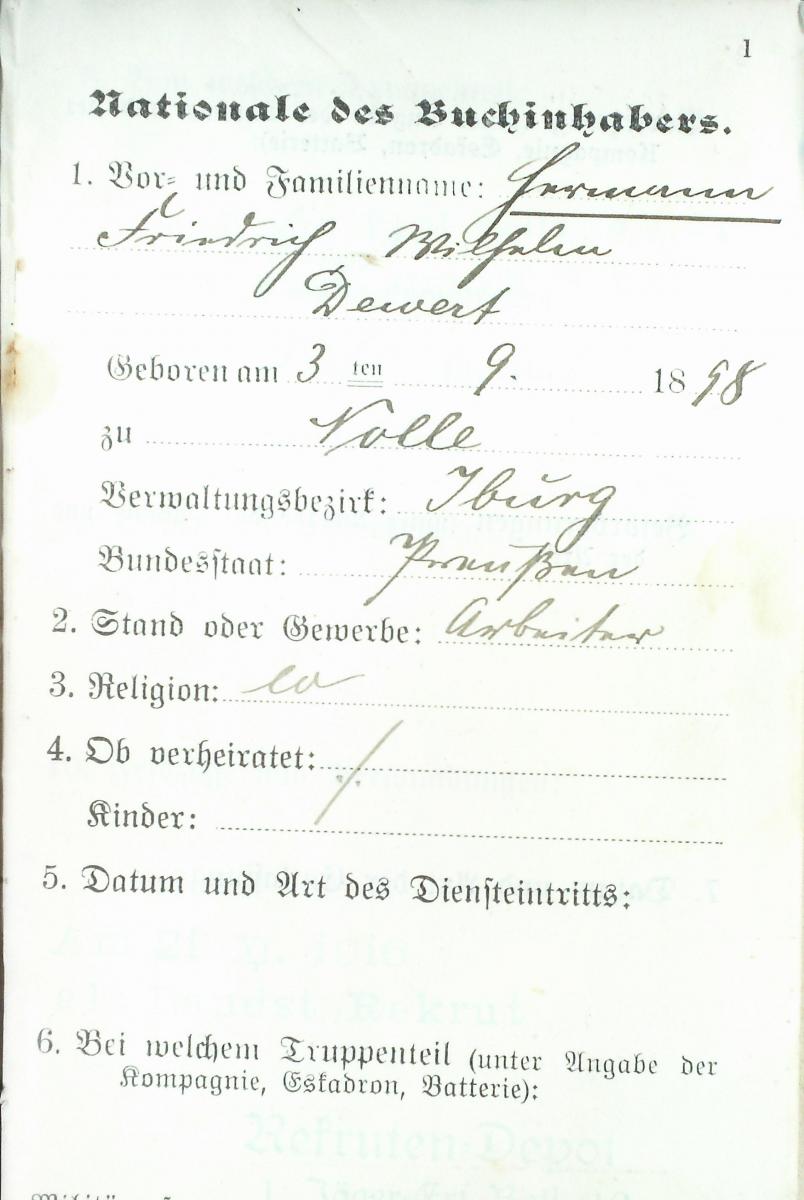 1
Nationale des Buchinhabers.
1. Vor- und Familienname: Hermann
Friedrich Wilhelm
Dewert
Geboren am 3 ten 9. 1898
zu Nolle
Verwaltungsbezirk: Iburg
Bundesstaat: Preußen
2. Stand oder Gewerbe: Arbeiter
3. Religion:
4. Ob verheiratet: /
Kinder:
5. Datum und Art des Diensteintritts:
Am 21. XI. 1916
als Landst. Rekrut
6. Bei welchem Truppenteil (unter Angabe der
Kompagnie, Eskadron, Batterie):
Rekruten-Depot